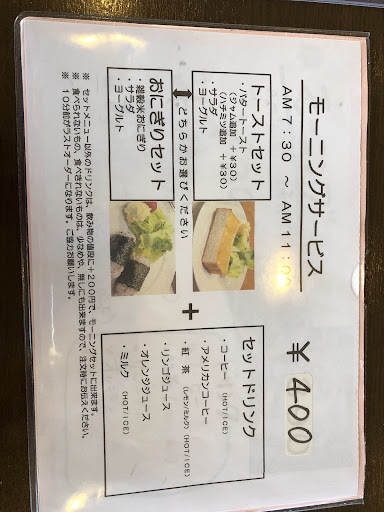 モーニングサービス
AM 7:30 ～ AM 11:00
¥400
トーストセット
・バタートースト
(ジャム追加 +¥30)
(ハチミツ追加 +¥30)
・サラダ
・ヨーグルト
どちらかお選びください
おにぎりセット
・雑穀米おにぎり
・サラダ
・ヨーグルト
+
セットドリンク
・コーヒー (HOT/ICE)
・アメリカンコーヒー
・紅 茶 (レモン/ミルク) (HOT/ICE)
・リンゴジュース
・オレンジジュース
・ミルク (HOT/ICE)
※ セットメニュー以外のドリンクは、飲み物の値段に+200円で、モーニングセットに出来ます。
※ 食べられないもの、食べきれないものは、少なめや、無しにも出来ますので、注文時にお伝えください。
※ 10分前がラストオーダーになります。ご協力お願いします。